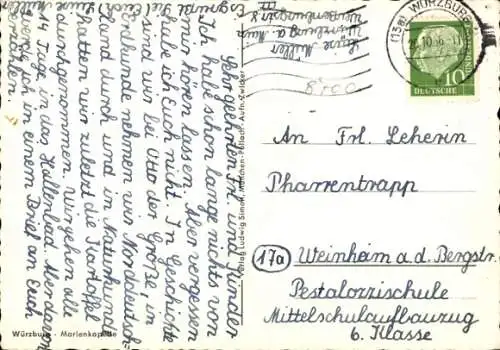 Sehr geehrtes Frl. und Kinder
Ich habe schon lange nichts von
mir hören lassen. Aber vergessen
habe ich Euch nicht. In Geschichte
sind wir bei Otto der Große, in
Erdkunde nehmen wir Norddeutsch-
land durch und in Naturkunde
hatten wir zuletzt die Kartoffel
durchgenommen. Wir gehen alle
14 Tage in das Hallenbad. Aber davon
werde ich in einem Brief an Euch
Es grüßt
viel Euch
Luise Müller
Luise Müller
Würzburg a. Main
Verlag Ludwig Simon, München-Pullach
Würzburg - Marienkapelle
(13a) WÜRZBURG
10
DEUTSCHE
BUNDESPOST
An Frl. Leherin
Pharrentrapp
17a Weinheim a. d. Bergstr.
Pestalozzischule
Mittelschulaufbauzug
6. Klasse